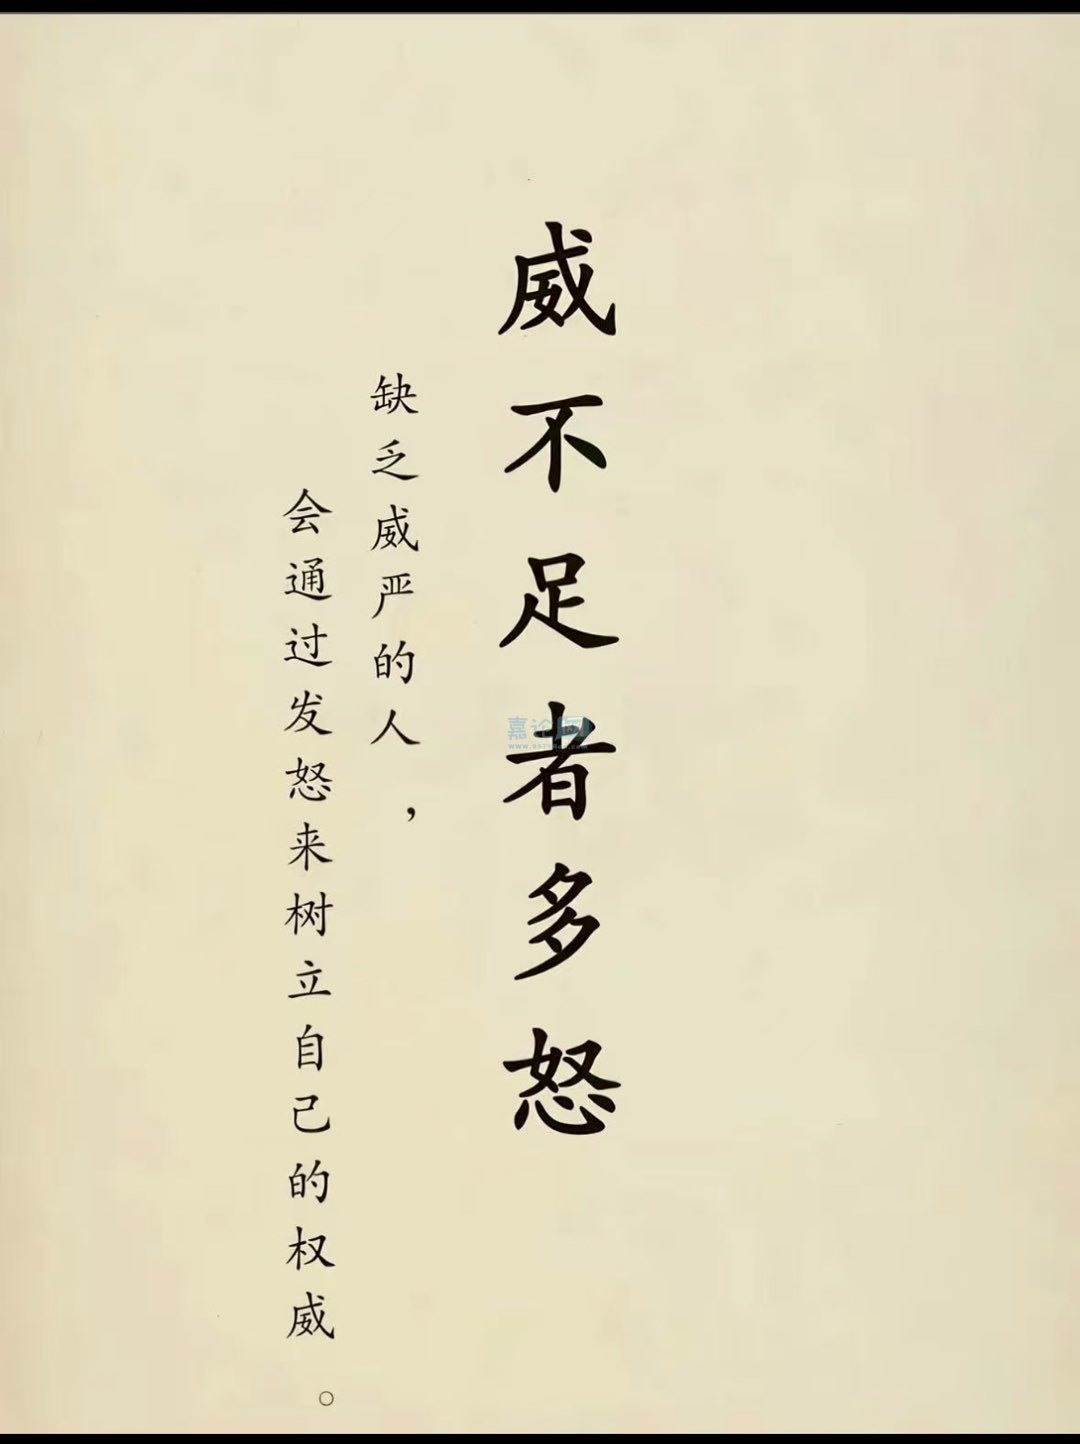 威不足者多怒
缺乏威严的人，
会通过发怒来树立自己的权威。
嘉论网